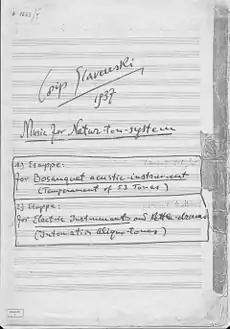 Josip Slavenski
1937
Music for Natur-ton-system
1) Etappe:
for Bosanquet acustic-instrument
(Temperament of 53 Tones)
2) Etappe:
for Electric Instruments and Kettle-drums